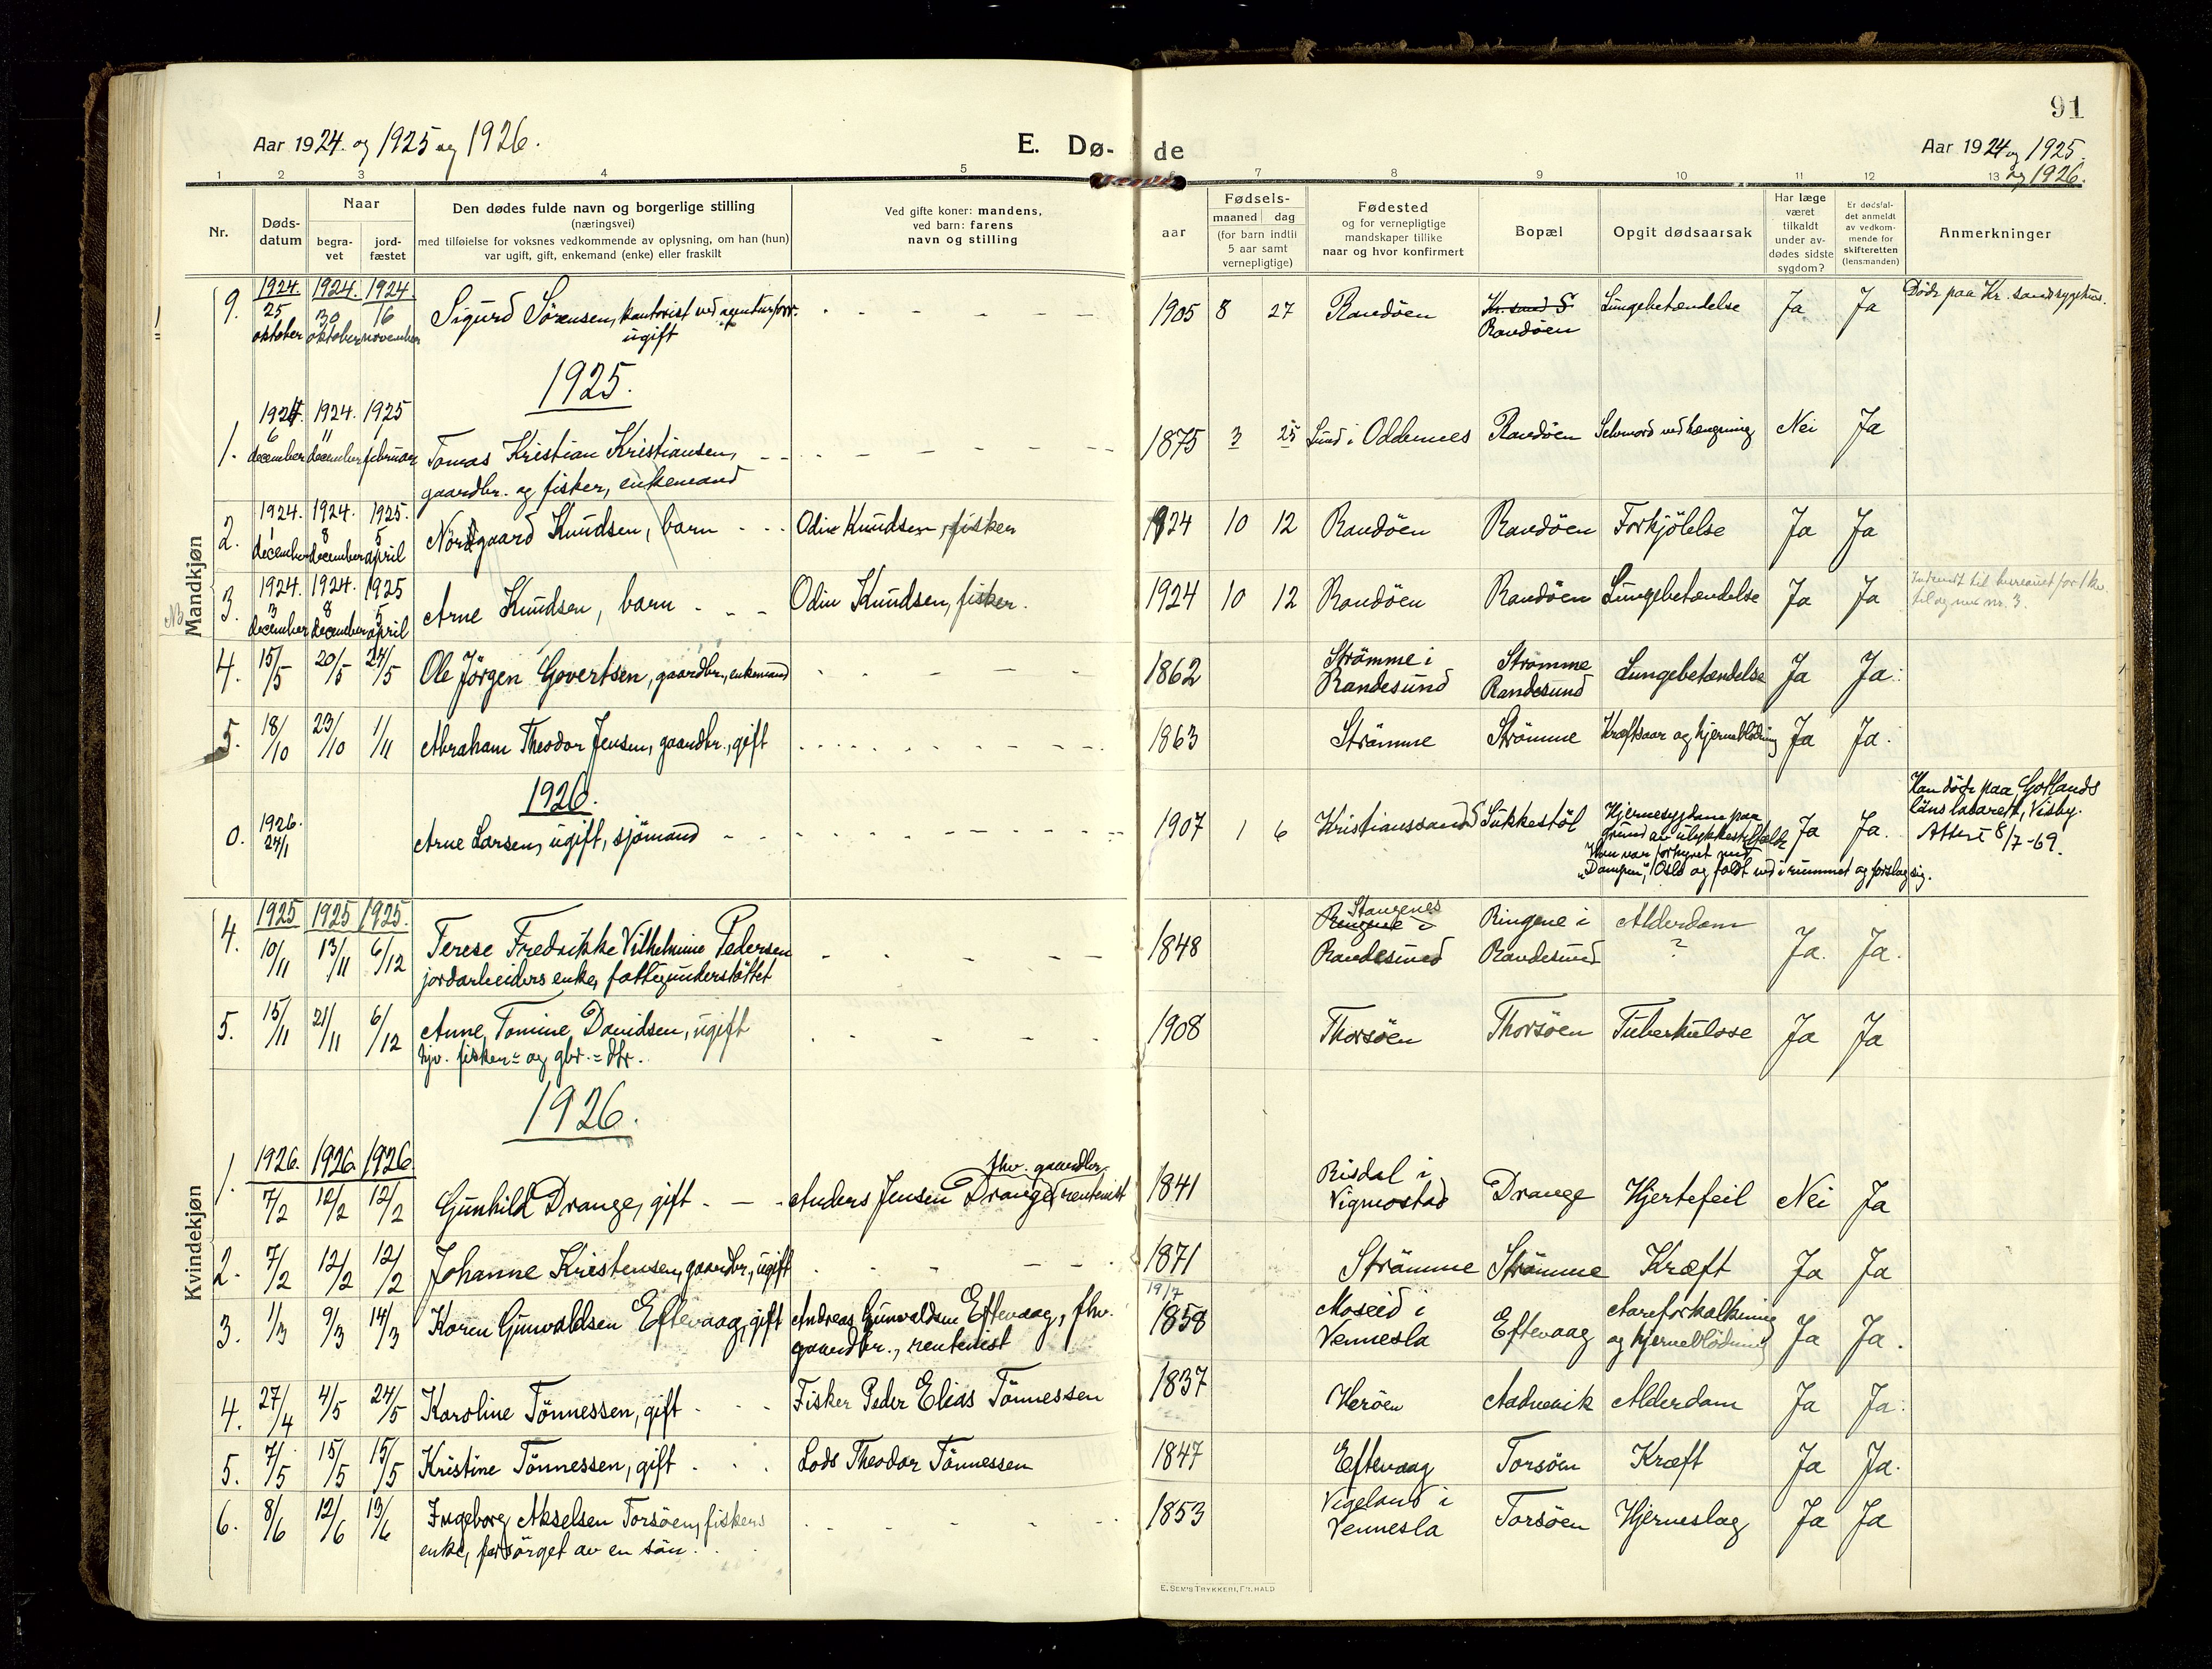 91
Aar 1924. og 1925 og 1926.
E. Dø-de
Aar 1924 og 1925.
og 1926.
1 2 3 4 5 7 8 9 10 11 12 13
Nr.
Døds-
datum
Naar
begra-
vet
jord-
fæstet
Den dødes fulde navn og borgerlige stilling
(næringsvei)
med tilføielse for voksnes vedkommende av oplysning, om han (hun)
var ugift, gift, enkemand (enke) eller fraskilt
Ved gifte koner: mandens,
ved barn: farens
navn og stilling
aar
Fødsels-
maaned dag
(for barn indtil
5 aar samt
vernepligtige)
Fødested
og for vernepligtige
mandskaper tillike
naar og hvor konfirmert
Bopæl
Opgit dødsaarsak
Har læge
været
tilkaldt
under av-
dødes sidste
sygdom?
Er dødsfal-
det anmeldt
av vedkom-
mende for
skifteretten
(lensmanden)
Anmerkninger
Mandkjøn
9. 1924. 25 oktober 1924. 30 oktober 1924 16 november Sigurd Sørensen, kontorist ved agenturforr. ugift 1905 8 27 Randöen Kr.sand S Randöen Lungebetændelse Ja Ja Döde paa Kr. sands sygehus.
1925.
1. 1924. 6 december 1924. 11 december 1925 1 februar Tomas Kristian Kristiansen,
gaardbr. og fisker, enkemand 1875 3 25 Lund i Oddernes Randöen Selvmord ved hængning Nei Ja
2. 1924. 1 december 1924. 8 december 1925. 5 april Nordgaard Knudsen, barn Odin Knudsen, fisker 1924 10 12 Randöen Randöen Forkjölelse Ja Ja
NB 3. 1924. 3 december 1924. 8 december 1925 5 april Arne Knudsen, barn Odin Knudsen, fisker. 1924 10 12 Randöen Randöen Lungebetændelse Ja Ja Indsendt til bureauet for 1 kv.
nr. 3.
4. 15/5 20/5 24/5 Ole Jörgen Govertsen, gaardbr., enkemand 1862 Strömme i Randesund Strömme Randesund Lungebetændelse Ja Ja.
5. 18/10 23/10 1/11 Abraham Theodor Jensen, gaardbr., gift 1863 Strömme Strömme Kræftsaar og hjerneblödning Ja Ja.
1926.
0. 1926. 24/1 Arne Larsen, ugift, sjömand 1907 1 6 Kristianssand S Sukkestöl Hjernesygdom paa
grund av ulykkestilfælde
Han var forhyret med
"Dampen", Oslo og faldt ned i rummet og forslog sig. Ja Ja. Han döde paa Gotlands
läns lasarett, Visby.
Attest 8/7-69.
Kvindekjøn
4. 1925 10/11 1925 13/11 1925. 6/12 Terese Fredrikke Vilhelmine Pedersen
jordarbeiders enke, fattigunderstöttet 1848 Ringene i Stangenes Randesund Ringene i Randesund Alderdom ? Ja. Ja.
5. 15/11 21/11 6/12 Anne Tomine Davidsen, ugift
hjv. fisker- og gbr.- dtr. 1908 Thorsöen Thorsöen Tuberkulose Ja Ja
1926.
1. 1926. 7/2 1926. 12/2 1926 12/2 Gunhild Drange, gift Anders Jensen Drange, fhv. gaardbr. rentenist 1841 Risdal i Vigmostad Drange Hjertefeil Nei Ja
2. 7/2 12/2 12/2 Johanne Kristensen, gaardbr., ugift 1871 Strömme Strömme Kræft Ja Ja
3. 1/3 9/3 14/3 Karen Gunvaldsen Eftevaag, gift Andreas Gunvaldsen Eftevaag, fhv.
gaardbr., rentenist 19/7 1858 Moseid i Vennesla Eftevaag Aareforkalkning
og hjerneblödning Ja Ja.
4. 27/4 4/5 24/5 Karoline Tönnessen, gift Fisker Peder Elias Tönnessen 1837 Heröen Aadnevik Alderdom Ja Ja.
5. 7/5 15/5 15/5 Kristine Tönnessen, gift Lods Theodor Tönnessen 1847 Eftevaag Torsöen Kræft Ja Ja.
6. 8/6 12/6 13/6 Ingeborg Akselsen Torsöen, fiskers
enke, forsörget av en sön 1853 Vigeland i Vennesla Torsöen Hjerneslag Ja Ja
E. SEM'S TRYKKERI, F'R.HALD